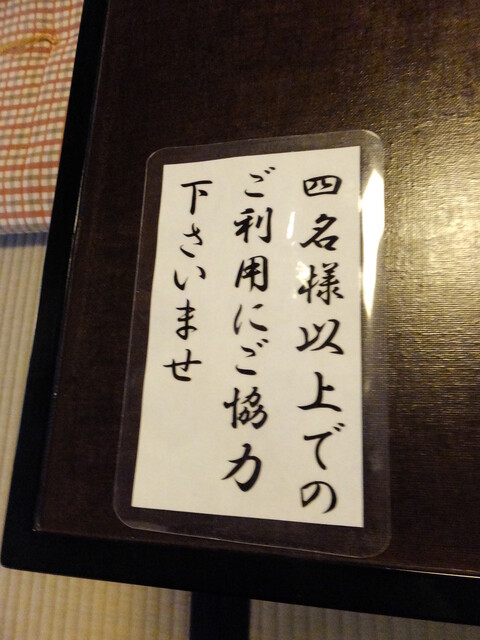 四名様以上での
ご利用にご協力
下さいませ